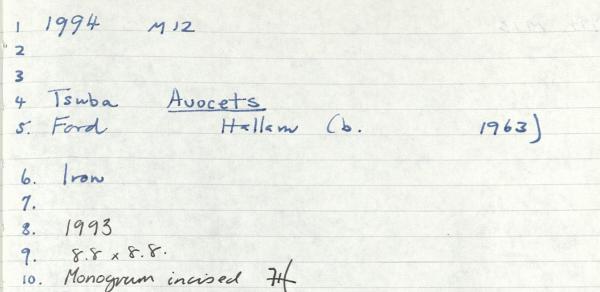 1 1994 M12
2
3
4 Tsuba Avocets
5. Ford Hallam (b. 1963)
6. Iron
7.
8. 1993
9. 8.8 x 8.8.
10. Monogram incised